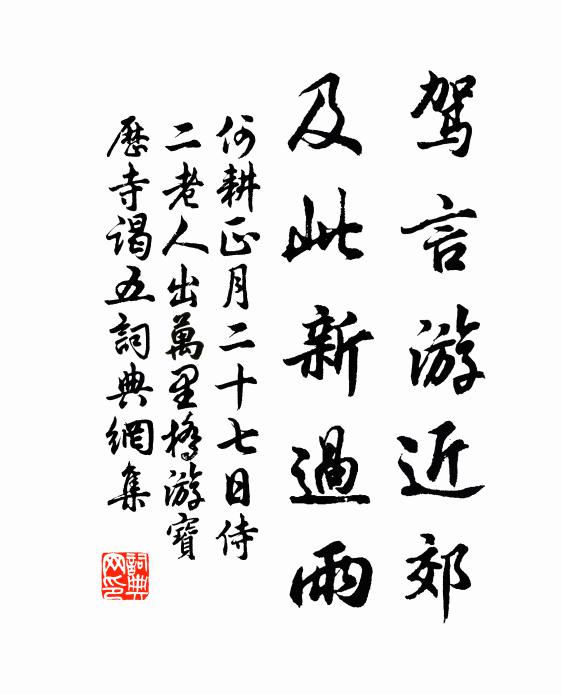 驾言游近郊
及此新過雨
何耕正月二十七日侍
二老人出萬里橋游寶
歷寺謁五詞典網集
詞典网印